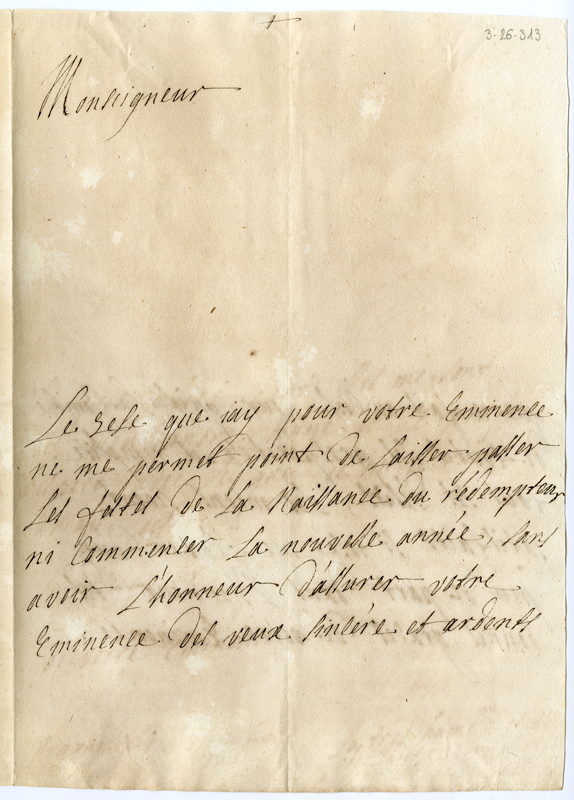 3-26-313
Monseigneur
Le zele que iay pour votre Eminence
ne me permet point de laisser passer
les festes de la Naissance du rédempteur
ni Commencer la nouvelle année, sans
avoir l'honneur d'assurer votre
Eminence des veux sincére et ardents